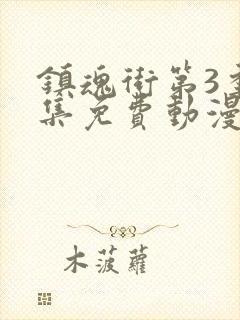 鎮魂街第3季
集免費動漫
木菠蘿